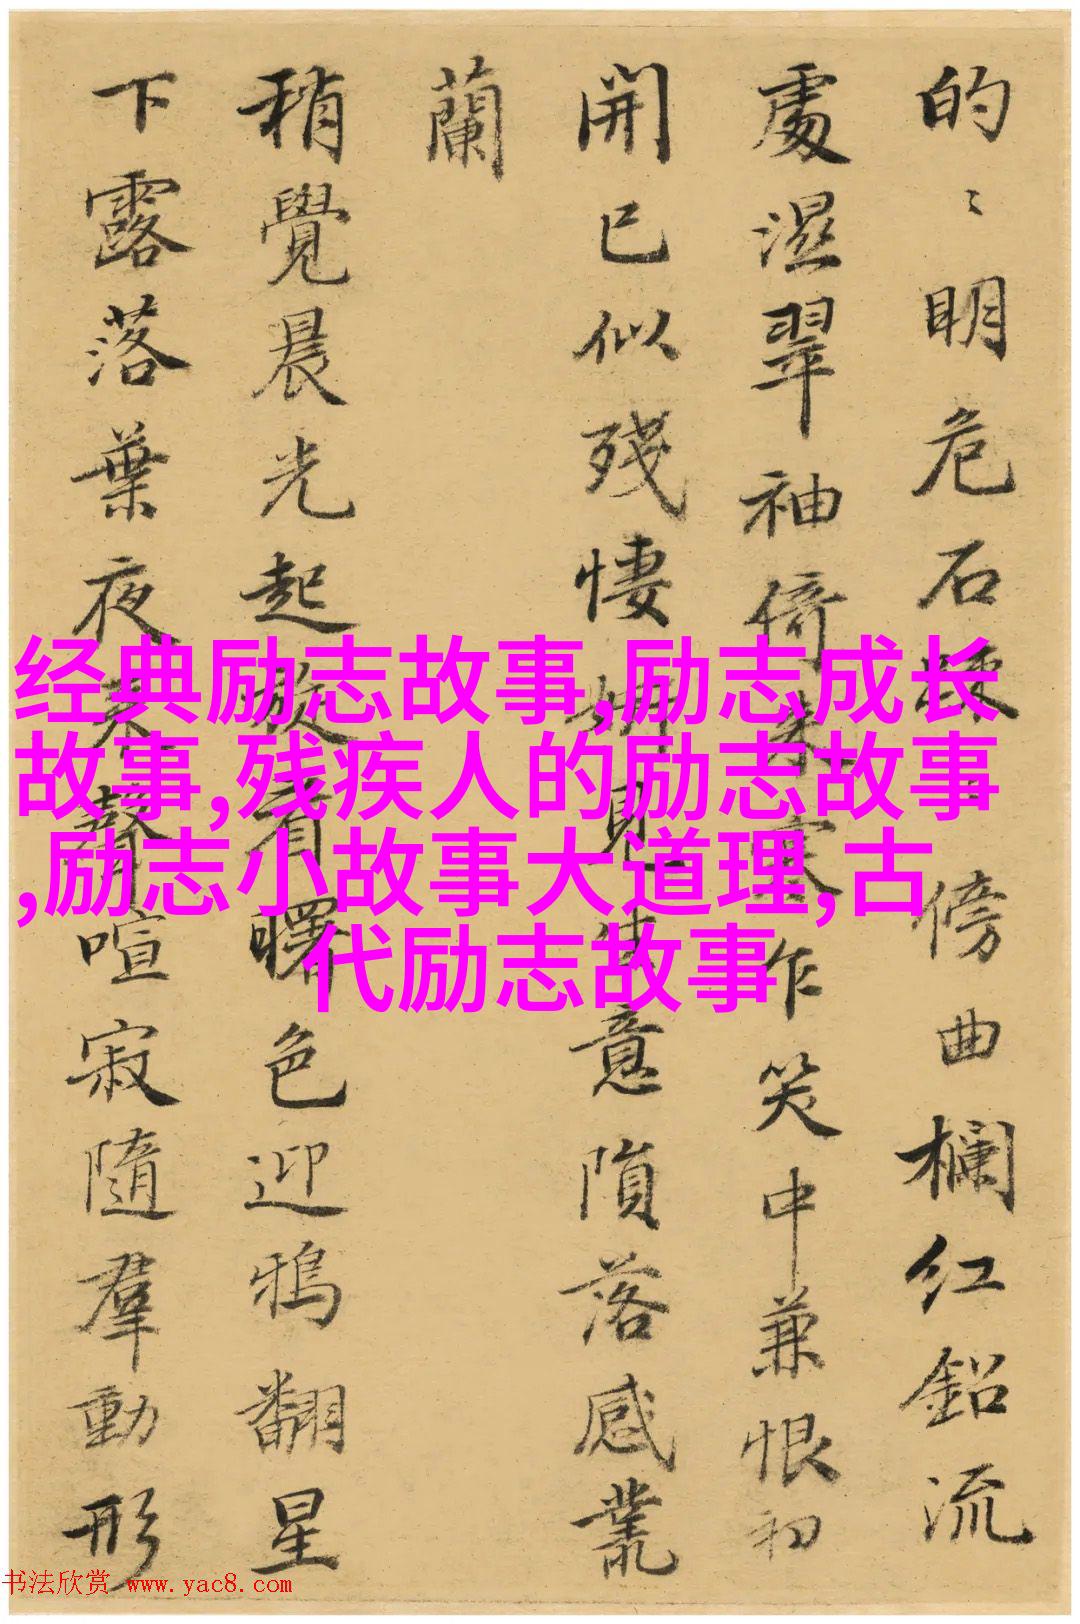 的〻明危石傍曲欄紅鉛流
處濕翠袖倚寒作笑中兼恨初
開已似殘悽見失意隕落感叢
蘭
稍覺晨光起看曙色迎鴉翻星
下露落葉夜聲喧寂隨羣動形
经典励志故事,励志成长
故事,残疾人的励志故事
,励志小故事大道理,古
代励志故事
书法欣赏 www.yac8.com